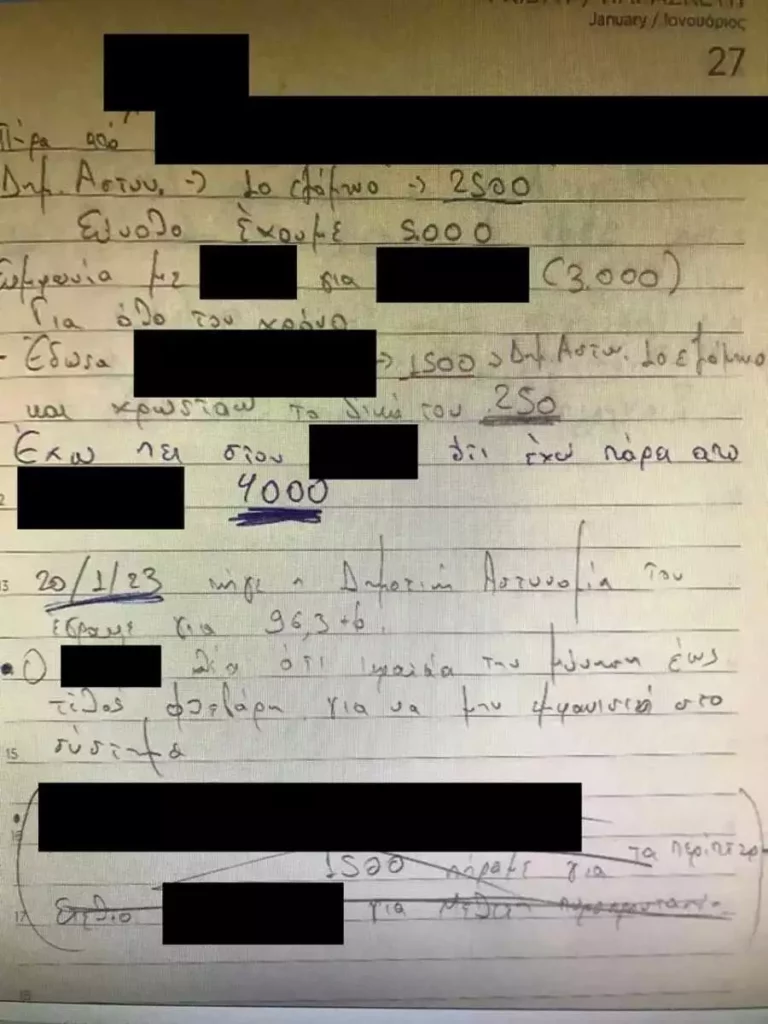 January / Ιανουάριος
27
Πήρα από
Δημ. Αστυν. -> 1ο εξάμηνο -> 2500
Σύνολο έχουμε 5.000
Συμφωνία με για (3.000)
Για όλο τον χρόνο
- Έδωσα -> 1500 -> Δημ. Αστυν. 1ο εξάμηνο
και χρωστάω το δικό του 250
Έχω πει στον ότι έχω πάρει από
4000
13 20/1/23 πήγε η Δημοτική Αστυνομία του
έγραψε για 96,3 τ.μ.
• Ο λέει ότι κρατάει την μήνυση έως
τέλος Φλεβάρη για να μην εμφανιστεί στο
15 σύστημα
1500 πήραμε για τα περίπτερ
17 για